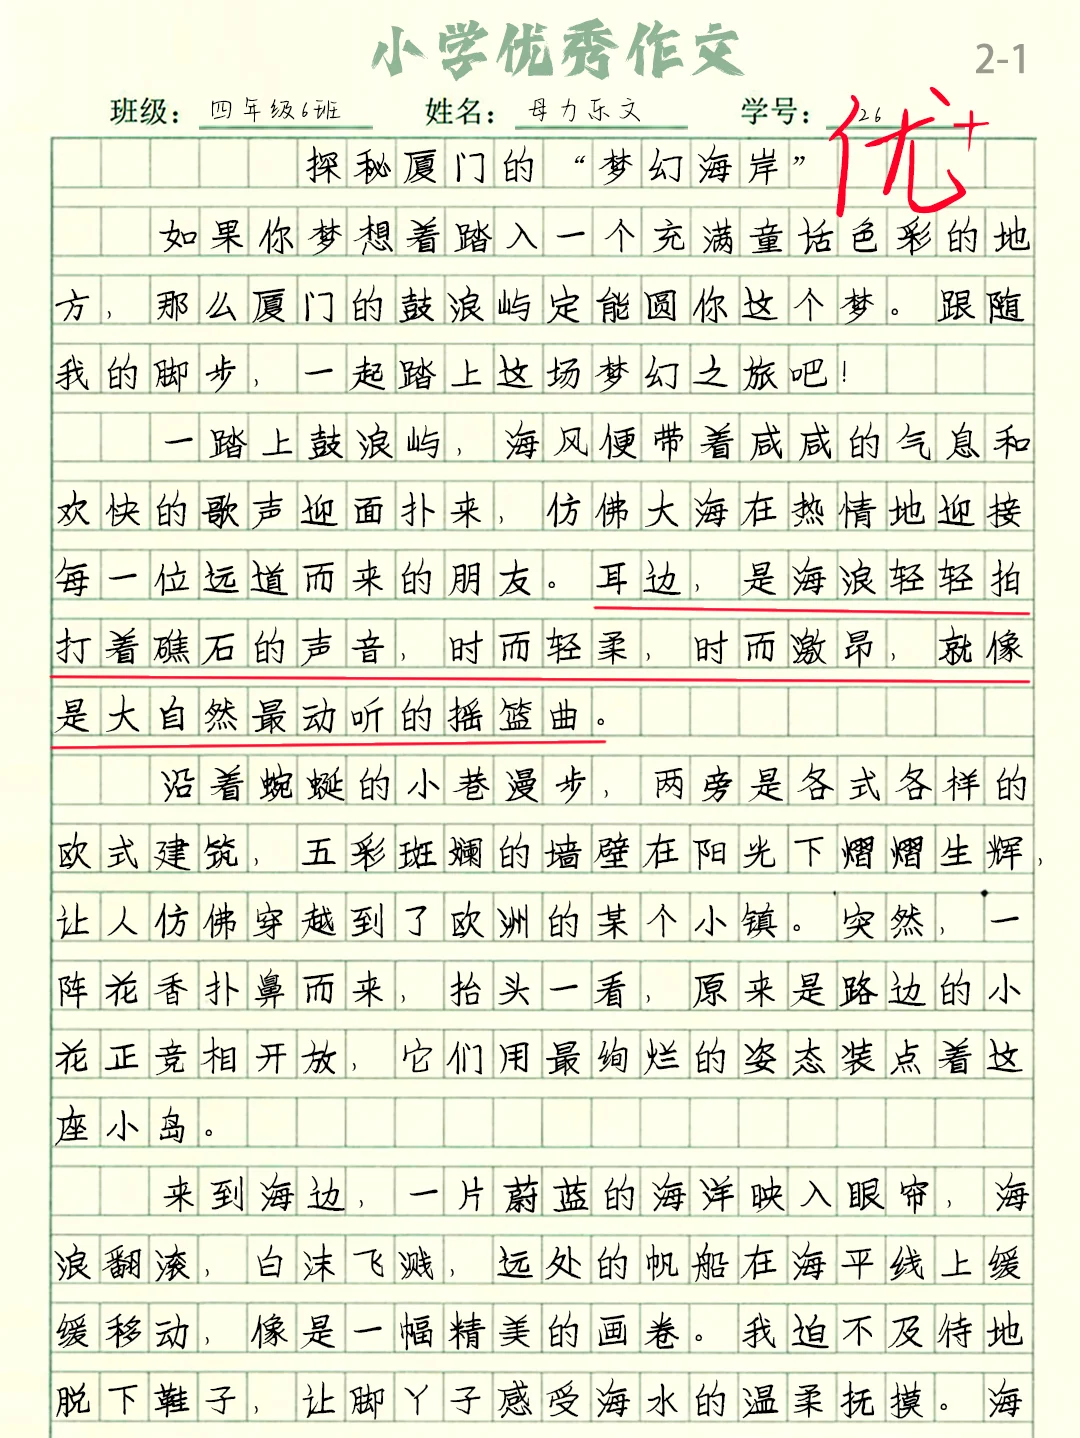 小学优秀作文
2-1
班级：四年级6班 姓名：母力乐文 学号：26
优+
探秘厦门的“梦幻海岸”
如果你梦想着踏入一个充满童话色彩的地
方，那么厦门的鼓浪屿定能圆你这个梦。跟随
我的脚步，一起踏上这场梦幻之旅吧！
一踏上鼓浪屿，海风便带着咸咸的气息和
欢快的歌声迎面扑来，仿佛大海在热情地迎接
每一位远道而来的朋友。耳边，是海浪轻轻拍
打着礁石的声音，时而轻柔，时而激昂，就像
是大自然最动听的摇篮曲。
沿着蜿蜒的小巷漫步，两旁是各式各样的
欧式建筑，五彩斑斓的墙壁在阳光下熠熠生辉，
让人仿佛穿越到了欧洲的某个小镇。突然，一
阵花香扑鼻而来，抬头一看，原来是路边的小
花正竞相开放，它们用最绚烂的姿态装点着这
座小岛。
来到海边，一片蔚蓝的海洋映入眼帘，海
浪翻滚，白沫飞溅，远处的帆船在海平线上缓
缓移动，像是一幅精美的画卷。我迫不及待地
脱下鞋子，让脚丫子感受海水的温柔抚摸。海